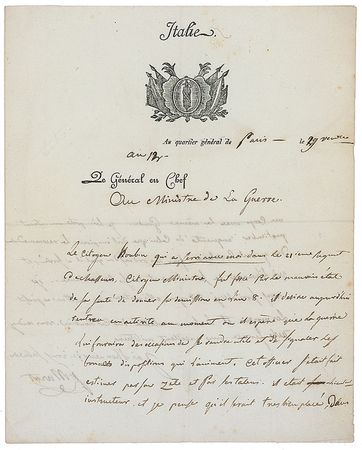 Italie
Au quartier général de Paris le 29
an 12
Le Général en Chef
Au Ministre de La Guerre.
Le citoyen qui a servi dans le 21 ieme Regiment
de chasseurs, Citoyen Ministre, fut forcé par le mauvais état
de sa santé de donner sa démission en l'an 8. Il désire aujourd'hui
rentrer en activité au moment où il espère que la guerre
lui fournira des occasions de se rendre utile et de signaler les
bonnes dispositions qui l'animent. cet officier s'était fait
estimer par son zèle et par ses talens. il était
instructeur, et je pense qu'il serait très bien placé dans